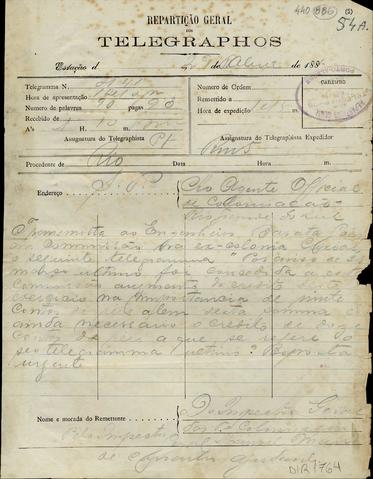 440 886 (2)
54A.
REPARTIÇÃO GERAL
DOS
TELEGRAPHOS
Estação d de Abril de 188
Telegramma N.
Hora de apresentação
Numero de palavras 90 pagas 90
Recebido de
A's 1 10 m
Assignatura do Telegraphista
Numero de Ordem
Remettido a
Hora de expedição
Assignatura do Telegraphista Expedidor
CARIMBO
Procedente de Rio Data Hora m.
Endereço Ao Agente Official
de Colonisação
Rio Grande do Sul
Transmitta ao Engenheiro Barata
em commissão na ex-colonia Caxias
o seguinte telegramma "Por aviso de
março ultimo foi concedida a essa
commissão augmento de credito deste
exercicio na importancia de vinte
contos de reis alem desta somma é
ainda necessario o credito de
contos de reis a que se refere o
seu telegramma ultimo? Resposta
urgente
Nome e morada do Remettente Do Inspector Geral
Colonisação
Pelo Inspector
ajudante
DIR 1764